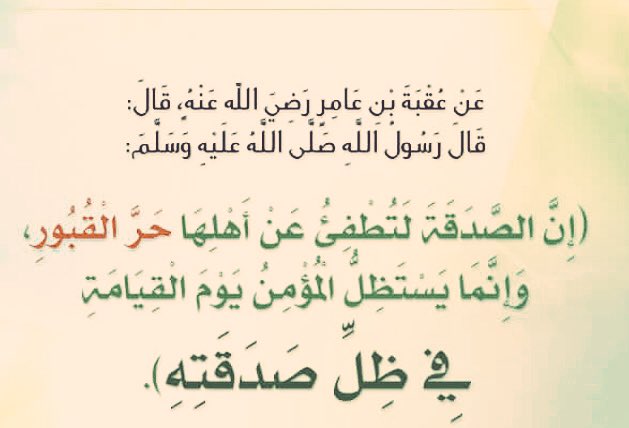 عَنْ عُقْبَةَ بْنِ عَامِرٍ رَضِيَ اللَّه عَنْهُ، قَالَ:
قَالَ رَسُولُ اللَّهِ صَلَّى اللَّهُ عَلَيْهِ وَسَلَّمَ:
(إِنَّ الصَّدَقَةَ لَتُطْفِئُ عَنْ أَهْلِهَا حَرَّ الْقُبُورِ،
وَإِنَّمَا يَسْتَظِلُّ الْمُؤْمِنُ يَوْمَ الْقِيَامَةِ
فِي ظِلِّ صَدَقَتِهِ).